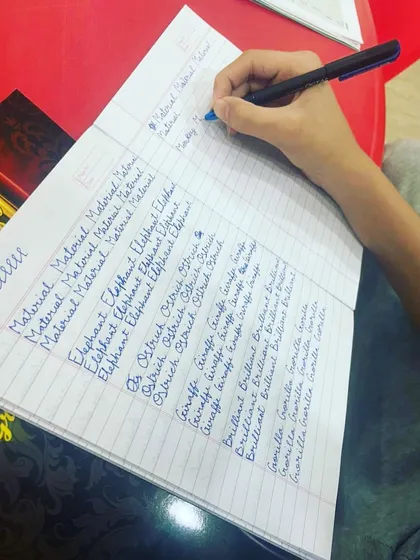 Material Material Material
Material
Monkey M
Material Material Material Material
Material Material Material Material
Material Material Material Material
Elephant Elephant Elephant Elephant
Elephant Elephant Elephant Elephant
Elephant Elephant Elephant Elephant
Ostrich Ostrich Ostrich
Ostrich Ostrich Ostrich Ostrich
Ostrich Ostrich Ostrich Ostrich
Giraffe Giraffe Giraffe Giraffe Giraffe
Giraffe Giraffe Giraffe Giraffe Giraffe
Giraffe Giraffe Giraffe Giraffe Giraffe
Brilliant Brilliant Brilliant Brilliant
Brilliant Brilliant Brilliant Brilliant
Brilliant Brilliant Brilliant Brilliant
Gorilla Gorilla Gorilla Gorilla Gorilla
Gorilla Gorilla Gorilla Gorilla Gorilla
Gorilla Gorilla Gorilla Gorilla Gorilla